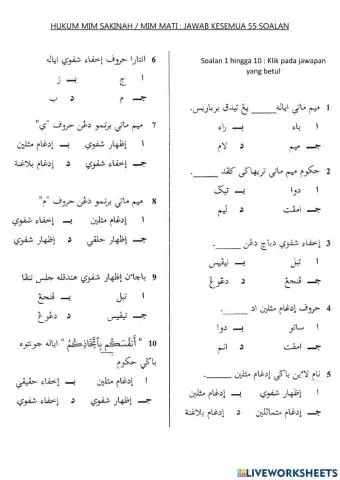 HUKUM MIM SAKINAH / MIM MATI : JAWAB KESEMUA 55 SOALAN
Soalan 1 hingga 10 : Klik pada jawapan
yang betul
1 ميم ماتي اياله_____ يڠ تيدق برباريس.
ا باء ب راء
ج ميم د لام
2 حكوم ميم ماتي تربهاكي كڤد _____.
ا دوا ب تيݢ
ج امڤت د ليم
3 إخفاء شفوي دباچ دڠن _____.
ا تبل ب نيڤيس
ج ڤنجڠ د دڠوڠ
4 حروف إدغام مثلين اد _____.
ا ساتو ب دوا
ج امڤت د انم
5 نام لاءين باݢي إدغام مثلين _____.
ا إظهار شفوي ب إدغام مثلين
ج إدغام متماثلين د إدغام بلاغنة
6 انتارا حروف إخفاء شفوي اياله
ا ج ب ز
ج م د ب
7 ميم ماتي برتمو دڠن حروف "ي"
ا إظهار شفوي ب إدغام مثلين
ج إخفاء شفوي د إدغام بلاغنة
8 ميم ماتي برتمو دڠن حروف "م"
ا إدغام مثلين ب إخفاء شفوي
ج إظهار حلقي د إظهار شفوي
9 باچاءن إظهار شفوي هندقله جلس تنڤا
ا تبل ب ڤنجڠ
ج نيڤيس د دڠوڠ
10 " أَنفُسَكُم بِٱتِّخَاذِكُمُ " اياله چونتوه
باݢي حكوم
ا إدغام مثلين ب إخفاء حقيقي
ج إظهار شفوي د إخفاء شفوي
LIVEWORKSHEETS